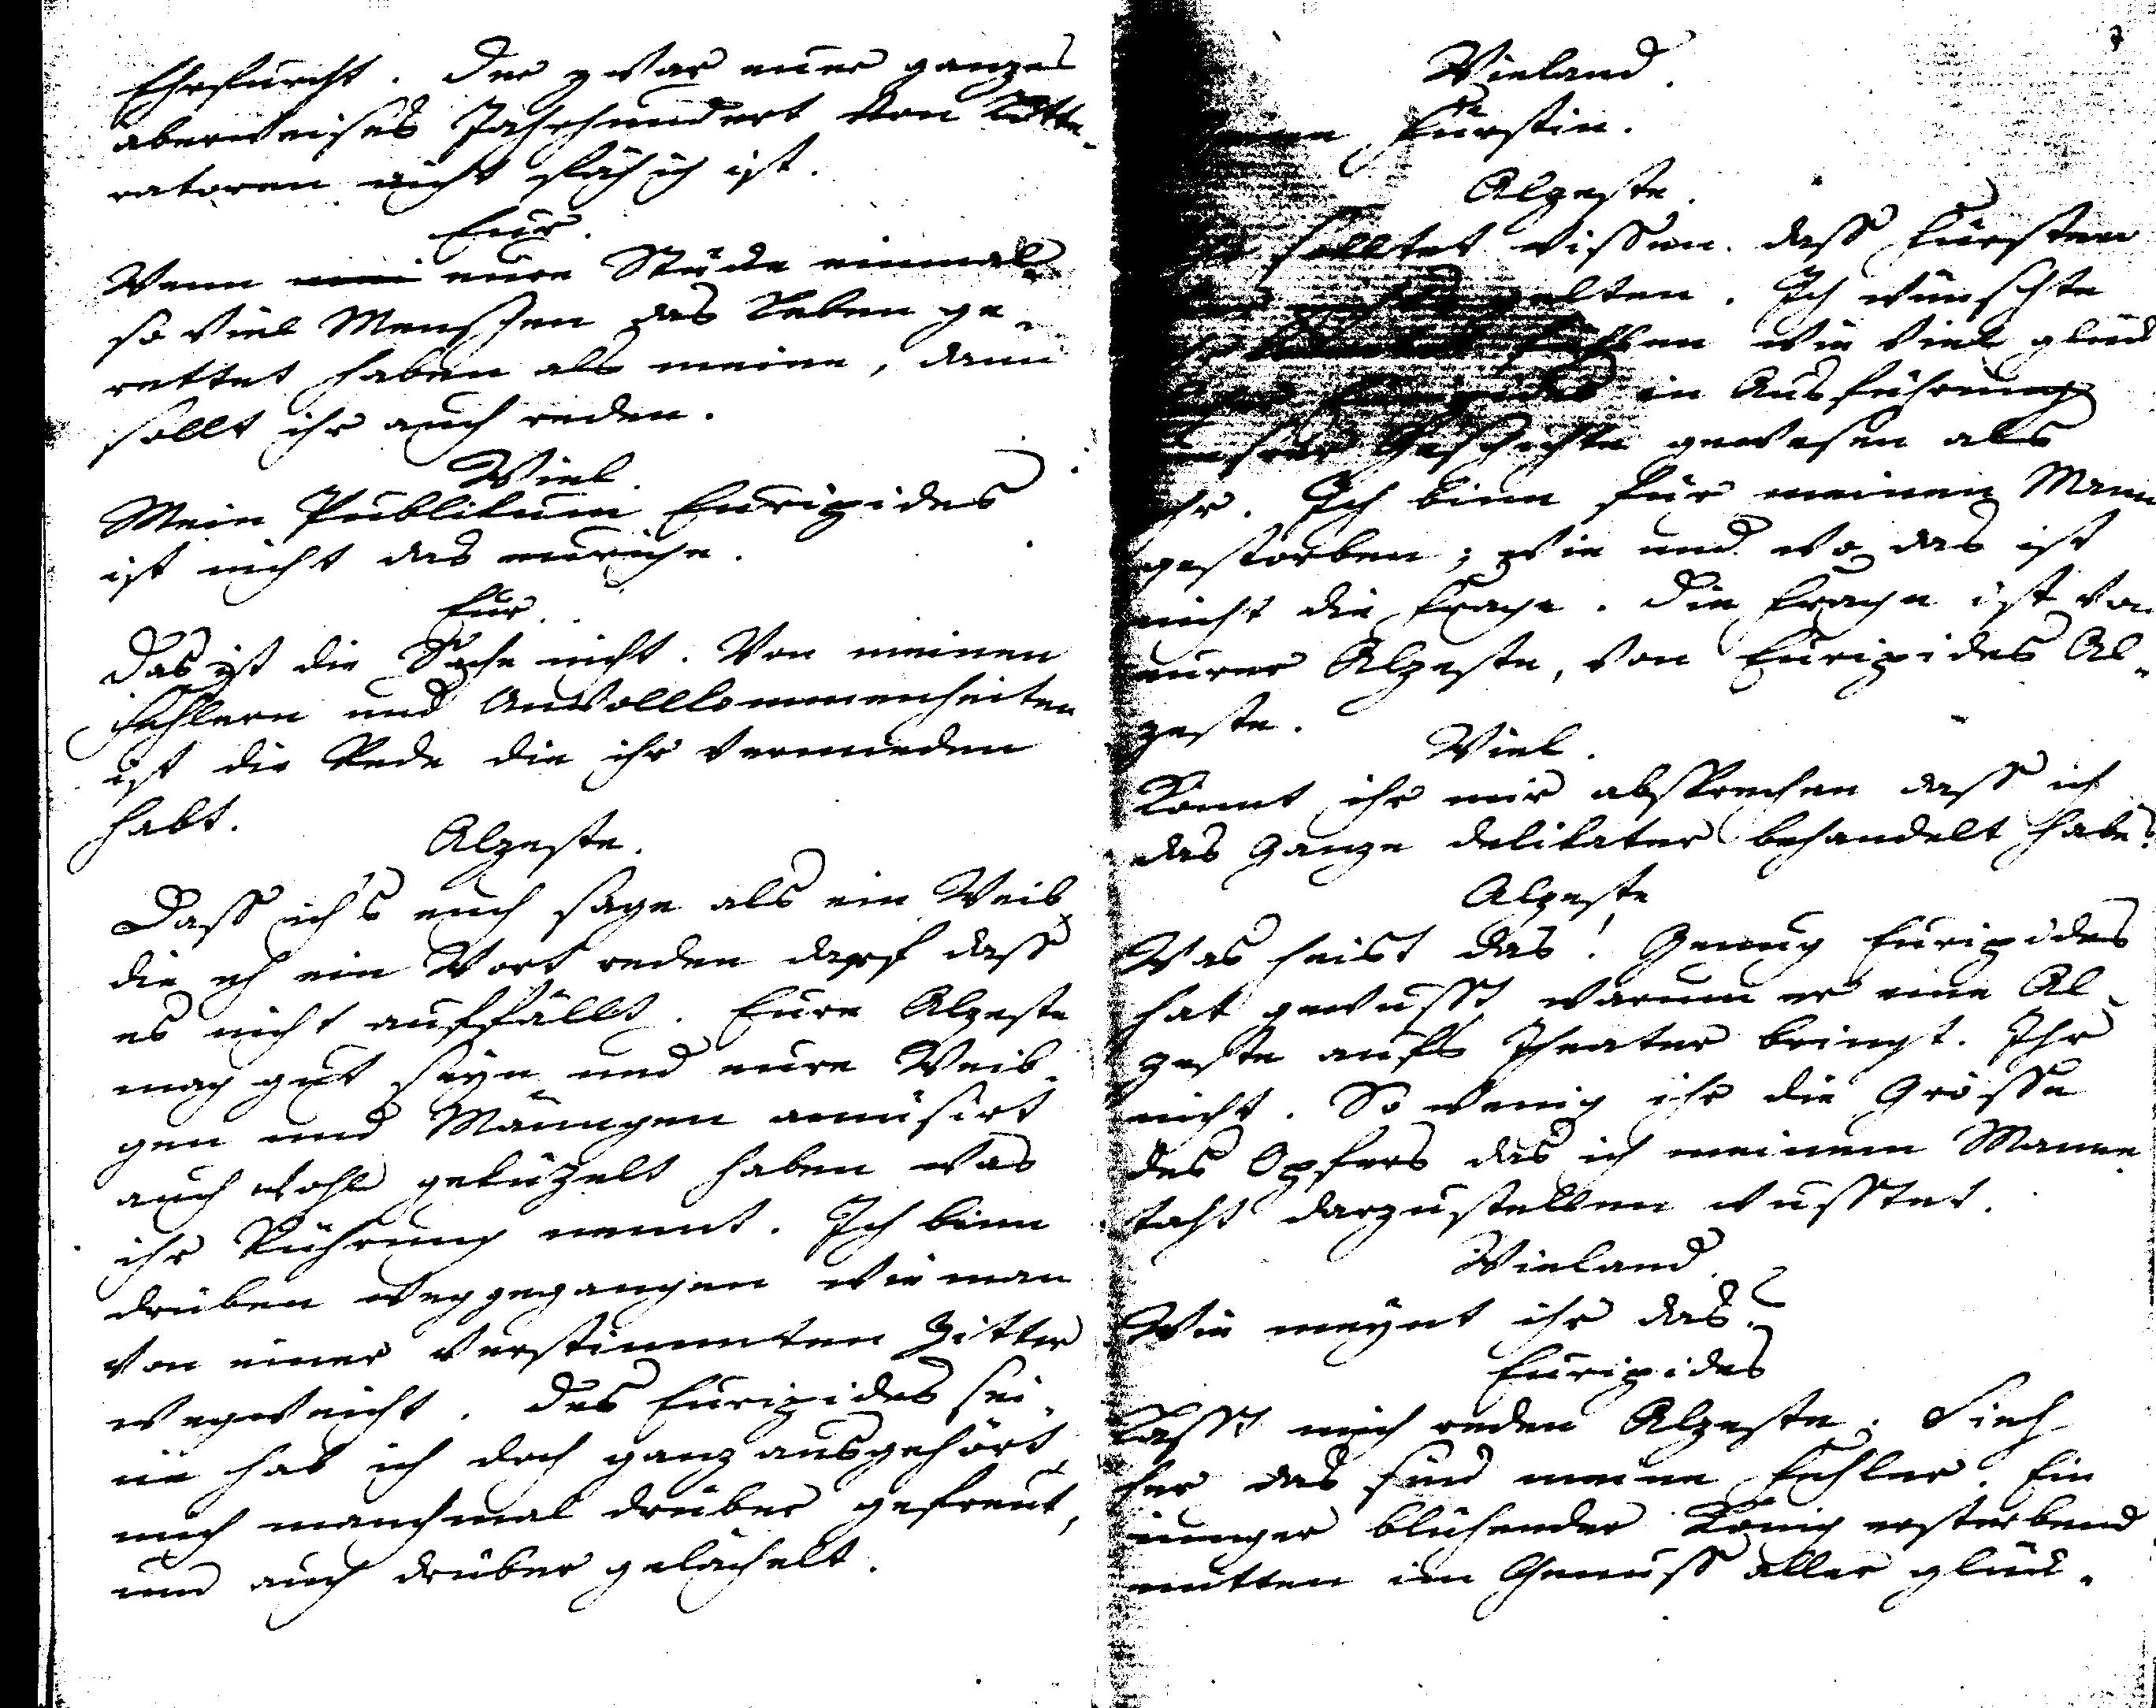 Ehrfurcht. Der zwar euer ganzes
aberweises Jahrhundert von Litte-
ratoren nicht fähig ist.
Eur.
Wenn eure Stücke einmal
so viel Menschen das Leben ge-
rettet haben als meine, dann
sollt ihr auch reden.
Wiel.
Mein Publikum Euripides
ist nicht das eurige.
Eur.
Das ist die Sache nicht. Von meinen
Fehlern und Unvollkommenheiten
ist die Rede die ihr vermieden
habt.
Alzeste.
Dass ich's euch sage als ein Weib
die eh ein Wort reden darf dass
es nicht auffällt. Eure Alzeste
mag gut seyn und eure Weib-
gen und Männgen amüsirt
auch wohl gekützelt haben was
ihr Rührung nennt. Ich binn
drüben weggegangen wie man
von einer verstimmten Zitter
wegweicht. Des Euripides sei-
ne hab ich doch ganz ausgehört,
mich manchmal drüber gefreut,
und auch drüber gelächelt.
7
Wieland.
Meine Fürstin.
Alzeste.
Ihr solltet wissen dass Fürsten
hier nichts gelten. Ich wünschte
ihr fühlen wie viel glück
licher Euripides in Ausführung
unsrer Geschichte gewesen als
ihr. Ich binn für meinen Mann
gestorben; wie und wo das ist
nicht die Frage. Die Frage ist von
eurer Alzeste, von Euripides Al-
zeste.
Wiel.
Könnt ihr mir absprechen dass ich
das Ganze delikater behandelt habe?
Alzeste
Was heist das! Genug Euripides
hat gewusst warum er eine Al-
zeste aufs Theater bringt. Ihr
nicht. So wenig ihr die Grösse
des Opfers das ich meinem Manne
taht darzustellen wusstet.
Wieland.
Wie meynt ihr das?
Euripides
Lasst mich reden Alzeste. Sieh
her das sind meine Fehler. Ein
iunger blühender König ersterbend
mitten im Genuss aller glück-